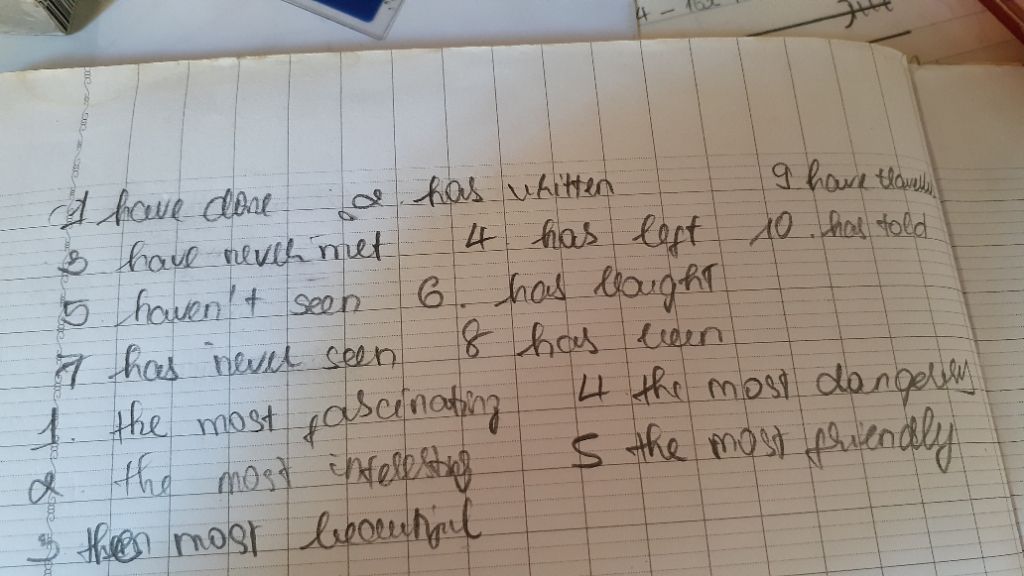 4 - 16
1 have done 2 has whitten 9 have
3 have never met 4 has left 10. has told
5 haven't seen 6. has
7 has never seen 8 has been
1. the most fascinating 4 the most
2 the most 5 the most friendly
3 most